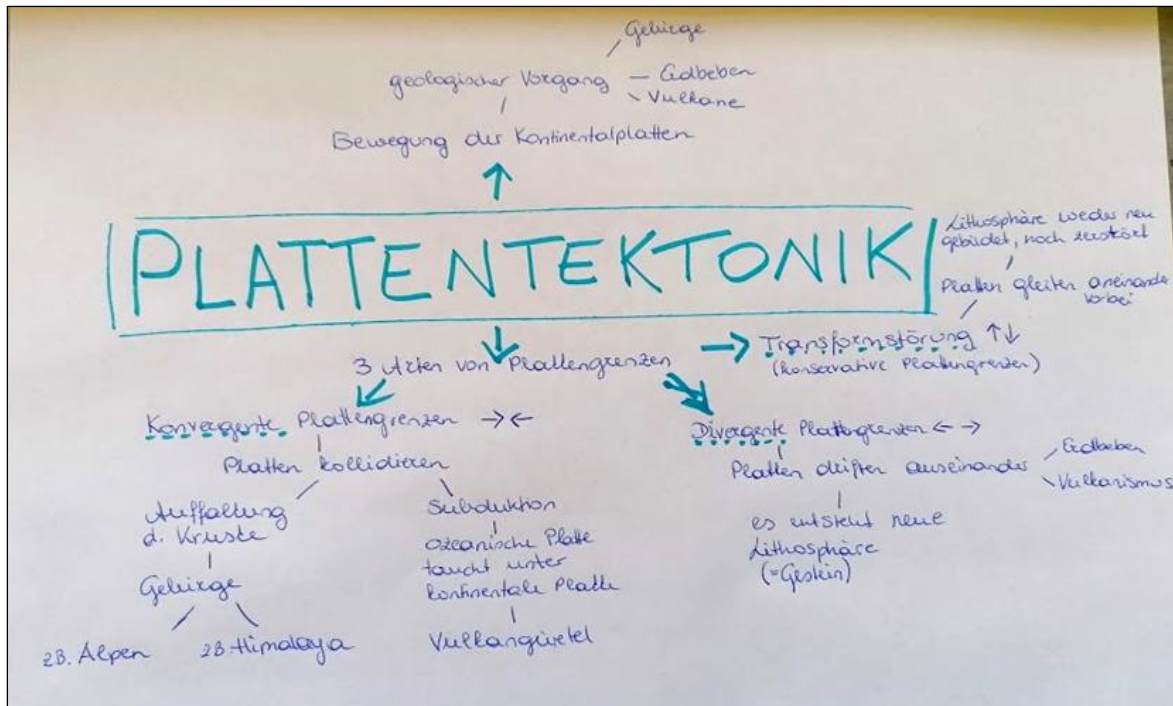 Gebirge
geologischer Vorgang — Erdbeben
Vulkane
Bewegung der Kontinentalplatten
PLATTENTEKTONIK
Lithosphäre weder neu
gebildet, noch zerstört
Platten gleiten aneinander
vorbei
3 Arten von Plattengrenzen
Transformstörung ↑↓
(konservative Plattengrenzen)
Konvergente Plattengrenzen →←
Platten kollidieren
Auffaltung
d. Kruste
Gebirge
zB. Alpen
zB. Himalaya
Subduktion
ozeanische Platte
taucht unter
kontinentale Platte
Vulkangürtel
Divergente Plattengrenzen ← →
Platten driften auseinander
Erdbeben
Vulkanismus
es entsteht neue
Lithosphäre
(=Gestein)